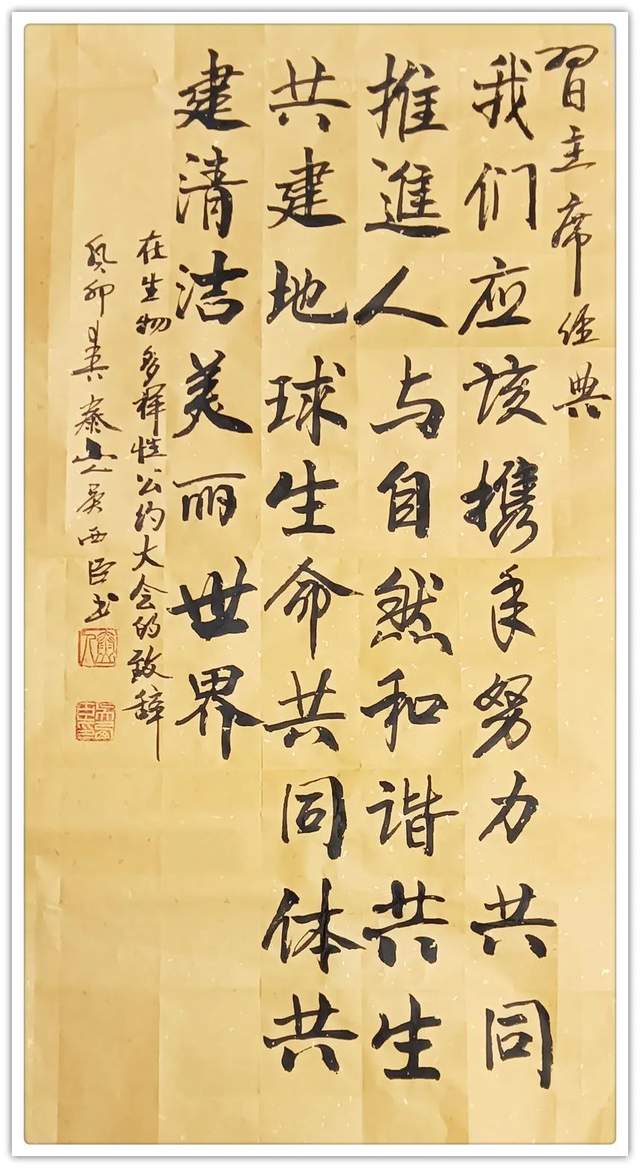 習主席经典
我们应该携手努力共同
推進人与自然和谐共生
共建地球生命共同体共
建清洁美丽世界
在生物多样性公约大会的致辞
癸卯年春泰山人吴西臣书